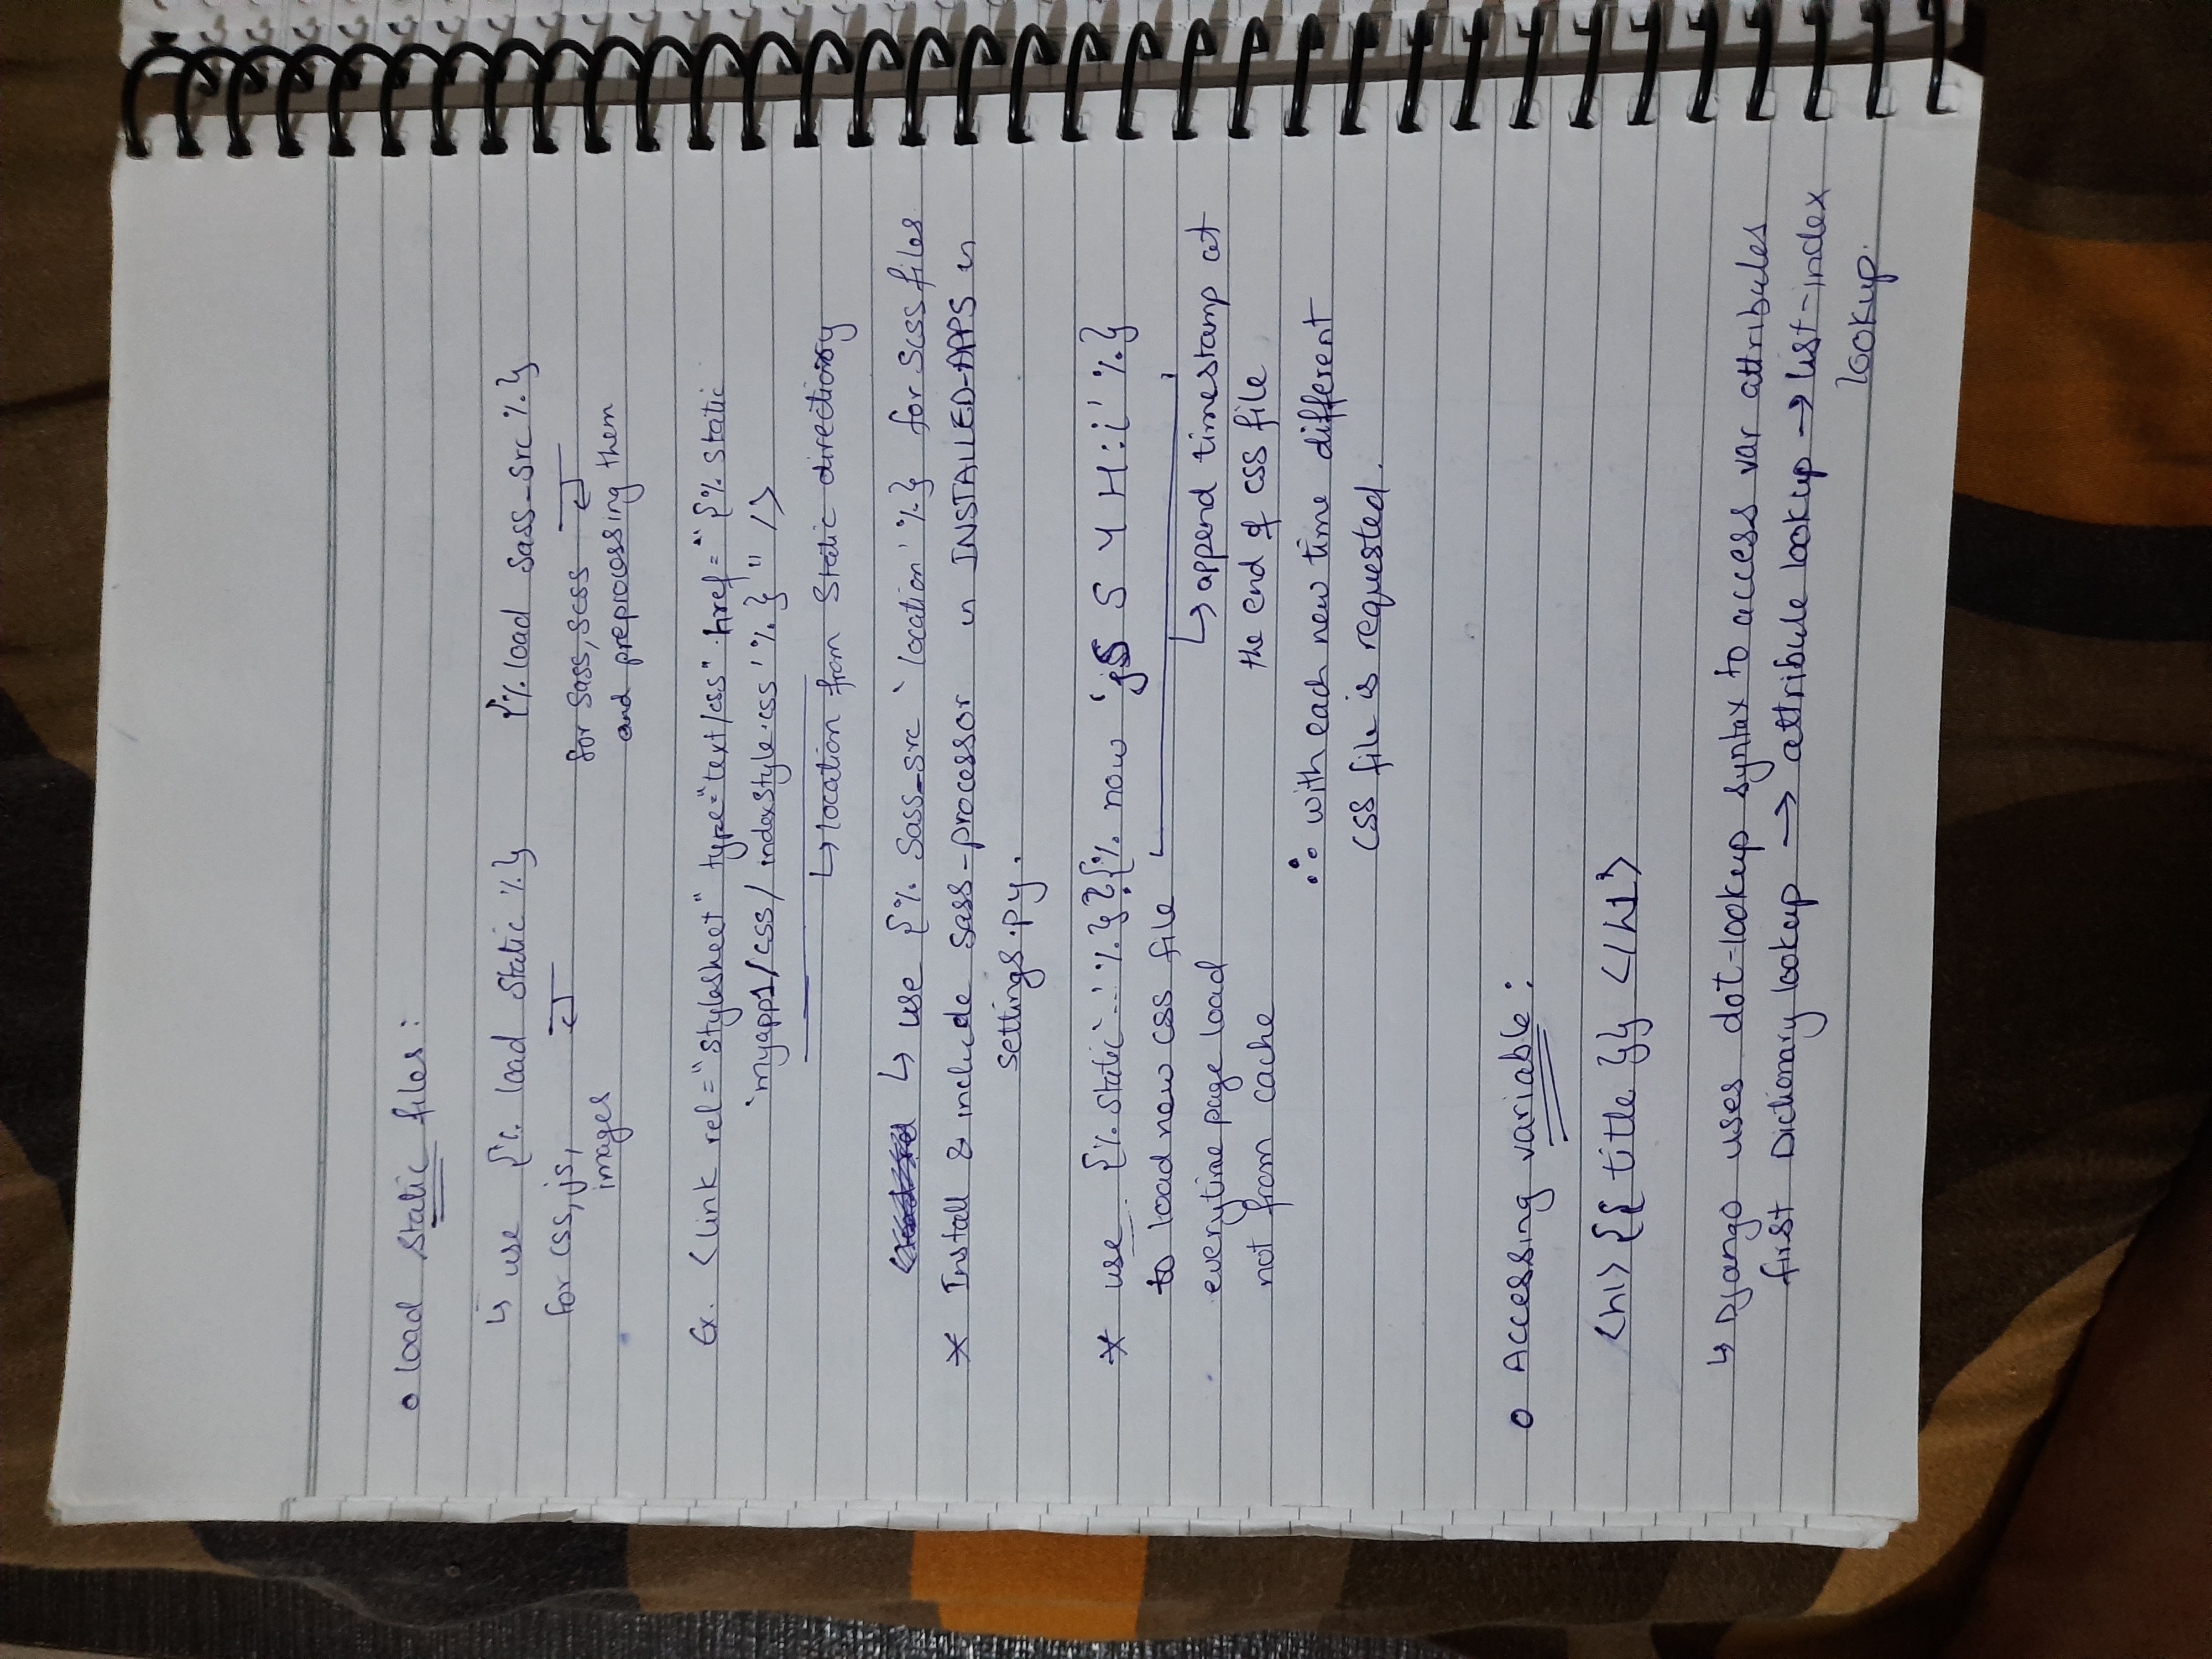 • load static files:
↳ use {% load static %} {% load sass_src %}
for css, js, for sass, scss
images and preprocessing them
Ex. <link rel="stylesheet" type="text/css" href="{% static
'myapp1/css/indexStyle.css' %}" />
↳ location from static directiory
↳ use {% sass_src 'location' %} for scss files
* Install & include sass-processor in INSTALLED-APPS in
settings.py.
* use {% static '--' %}?{% now 'jS S Y H:i' %}
to load new css file
everytime page load ↳ append timestamp at
not from cache the end of css file
∴ with each new time different
css file is requested.
• Accessing variable:
<h1> {{ title }} </h1>
↳ Django uses dot-lookup syntax to access var attributes
first Dictionary lookup → attribute lookup → list-index
lookup.